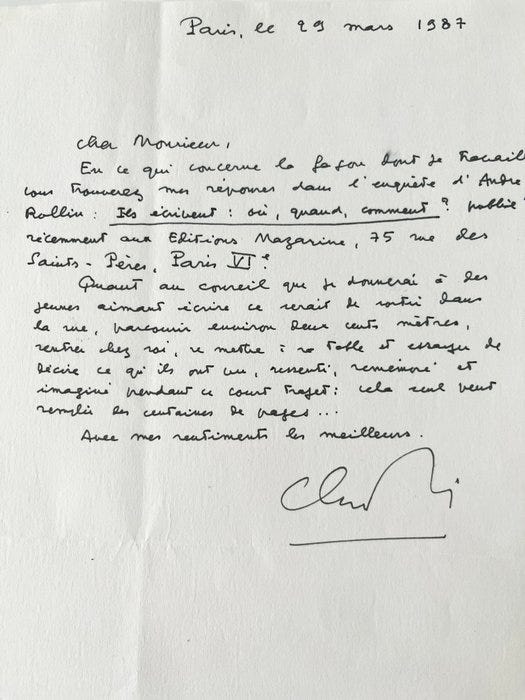 Paris, le 29 mars 1987
Cher Monsieur,
En ce qui concerne la façon dont je travaill
vous trouverez mes réponses dans l'enquête d'André
Rollin : Ils écrivent : où, quand, comment ? publié
récemment aux Editions Mazarine, 75 rue des
Saints-Pères, Paris VIe
Quant au conseil que je donnerai à des
jeunes aimant écrire ce serait de sortir dans
la rue, parcourir environ deux cents mètres,
rentrer chez soi, se mettre à sa table et essayer de
décrire ce qu'ils ont vu, ressenti, remémoré et
imaginé pendant ce court trajet : cela seul peut
remplir des centaines de pages...
Avec mes sentiments les meilleurs.